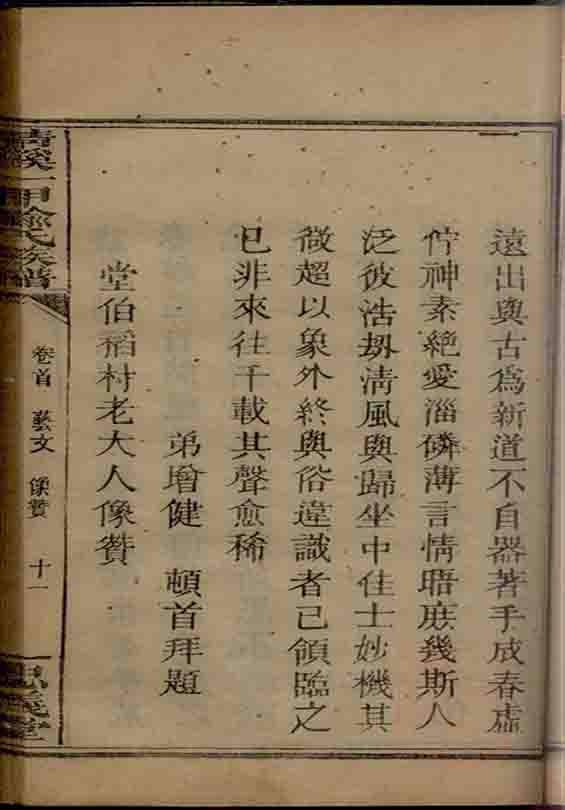 遠出與古爲新道不自器著手成春虛
佇神素絶愛淄磷薄言情晤庶幾斯人
泛彼浩刼清風與歸坐中佳士妙機其
微超以象外終與俗違識者已領臨之
已非來往千載其聲愈稀
弟增健 頓首拜題
堂伯稻村老大人像贊
清溪一甲氏族譜
卷首 藝文 像贊 十一
義堂